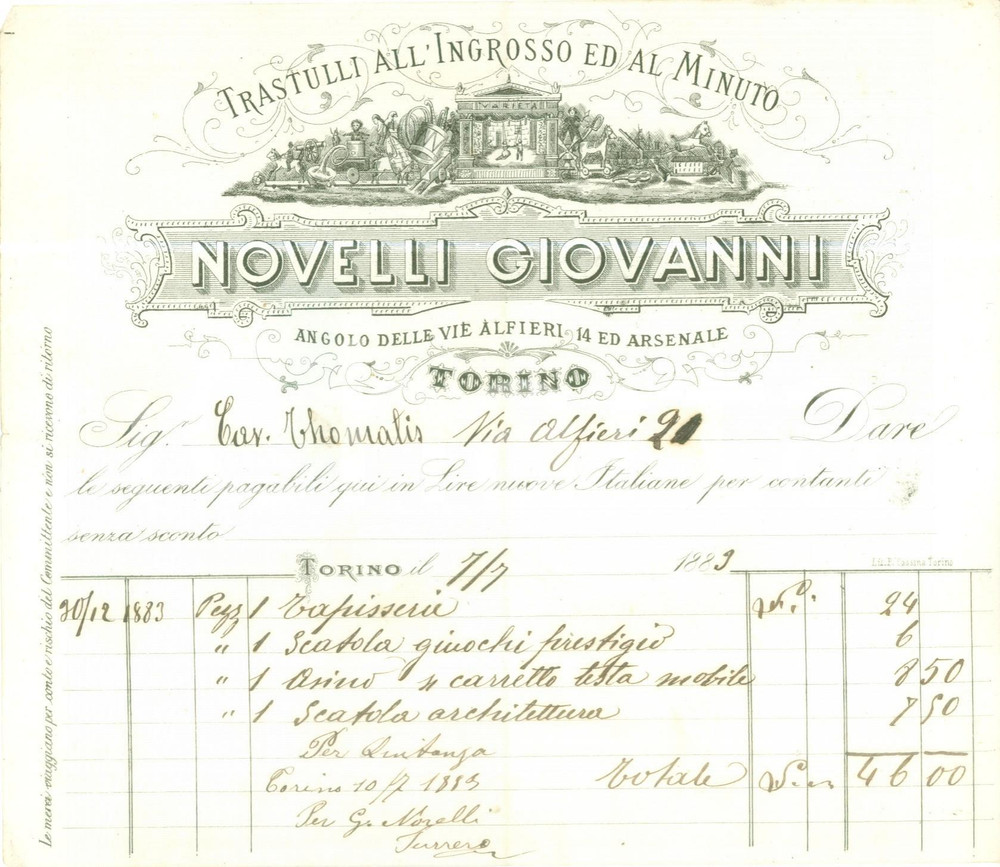 TRASTULLI ALL'INGROSSO ED AL MINUTO
VARIETÀ
NOVELLI GIOVANNI
ANGOLO DELLE VIE ALFIERI, 14 ED ARSENALE
TORINO
Sig.r Cav. Thomatis Via Alfieri 20 Dare
le seguenti pagabili qui in Lire nuove Italiane per contanti
senza sconto
TORINO il 7/7 1883
Torino
30/12 1883 Pezz 1 Tapisserie 24
" 1 Scatola giuochi prestigio 6
" 1 Asino " carretto testa mobile 8 50
" 1 Scatola architettura 7 50
Per Quitanza
Torino 10/7 1883 Totale 46 00
Per G. Novelli
Ferrero
Le merci viaggiano per conto e rischio del Committente e non si ricevono di ritorno